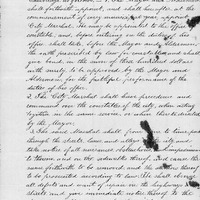 forthwith appoint, and shall hereafter, at the
commencement of every municipal year, appoint a
City Marshal. He may be appointed to the office of
constable, and, before entering on the duties of his
office shall take, before the Mayor and Aldermen,
the oath prescribed by law for constables, and shall
give bond, in the sum of three hundred dollars
with surety to be approved by the Mayor and
Aldermen for the faithful performance of the
duties of his office.
2. The City Marshal shall have precedence and
command over the constables of the city, when acting
together in the same service, or when there directed
by the Mayor.
3. The said Marshal shall from time to time pass
through the streets, lanes and alleys of the city and
take notice of all nuisances, obstructions and impediments
to them and on the sidewalks thereof, and cause the
same forthwith to be removed, and the authors thereof
to be prosecuted according to law. He shall observe
all defects and want of repair in the highways and
streets and give immediate notice thereof to the